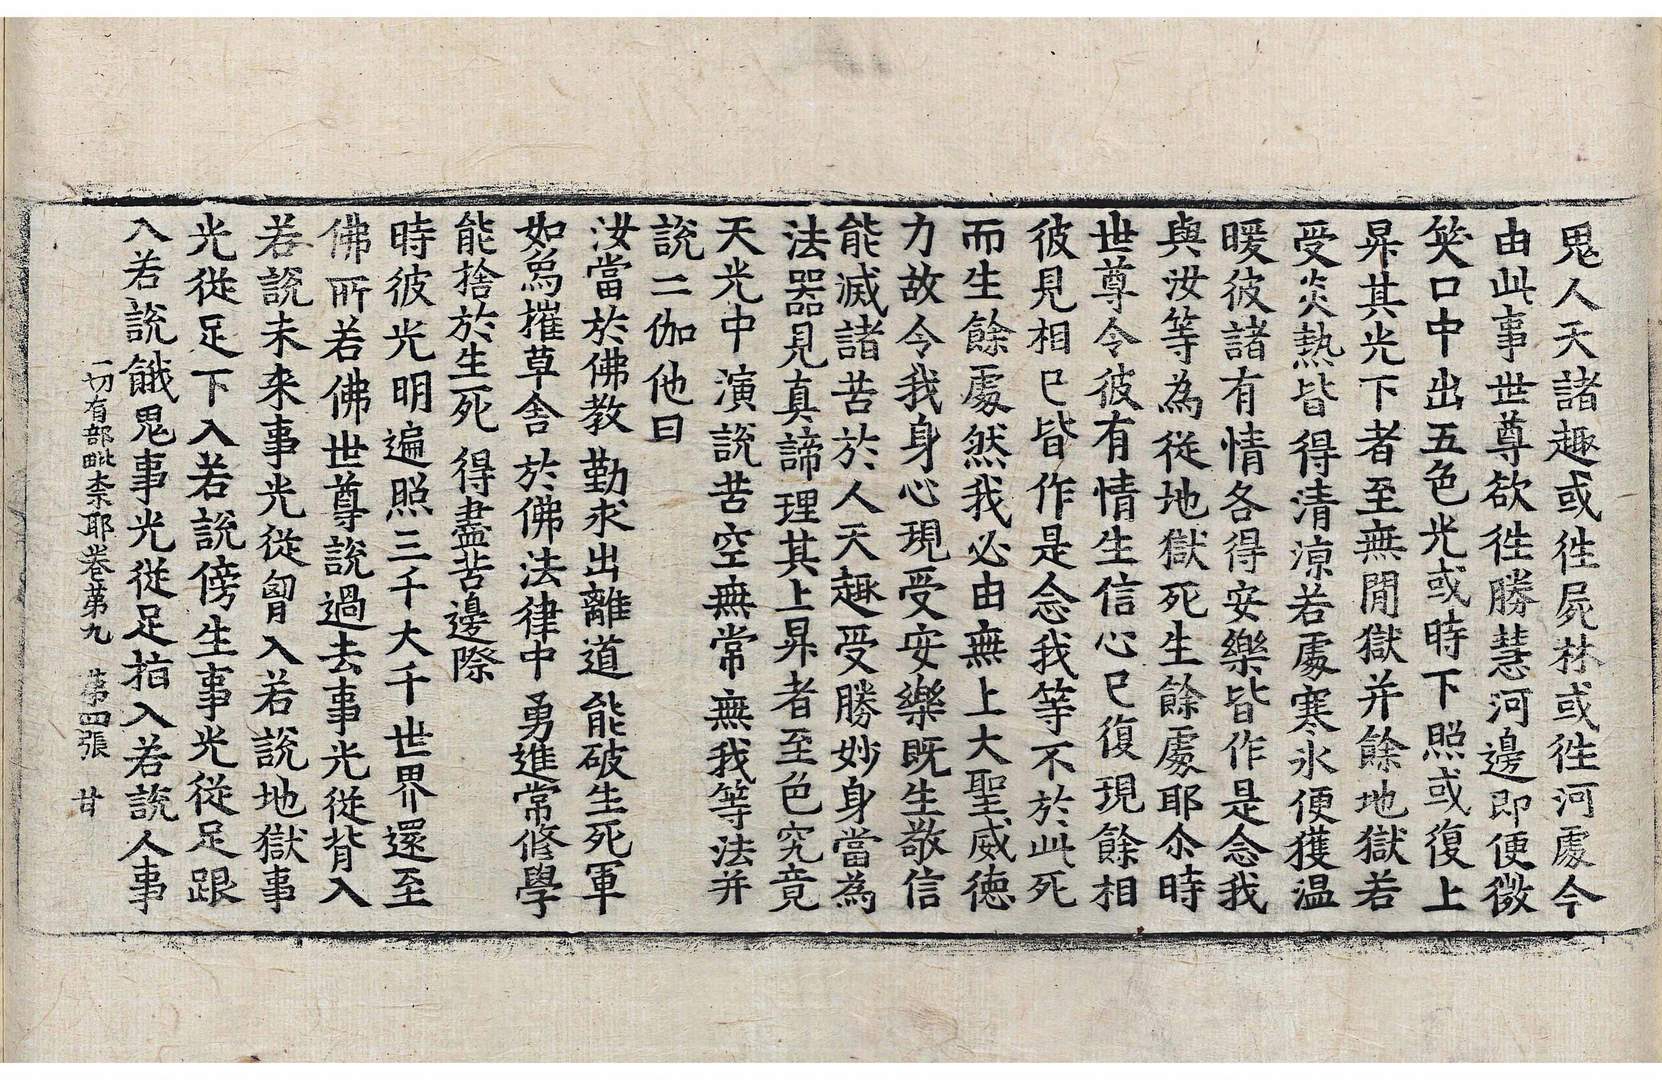 鬼人天諸趣或往屍林或往河處今
由此事世尊欲往勝慧河邊即便微
笑口中出五色光或時下照或復上
昇其光下者至無間獄并餘地獄若
受炎熱皆得清涼若處寒氷便獲温
暖彼諸有情各得安樂皆作是念我
與汝等為從地獄死生餘處耶尒時
世尊令彼有情生信心已復現餘相
彼見相已皆作是念我等不於此死
而生餘處然我必由無上大聖威德
力故令我身心現受安樂既生敬信
能滅諸苦於人天趣受勝妙身當為
法器見真諦理其上昇者至色究竟
天光中演說苦空無常無我等法并
說二伽他曰
汝當於佛教 勤求出離道 能破生死軍
如爲摧草舍 於佛法律中 勇進常修學
能捨於生死 得盡苦邊際
時彼光明遍照三千大千世界還至
佛所若佛世尊說過去事光從背入
若說未來事光從胷入若說地獄事
光從足下入若說傍生事光從足跟
入若說餓鬼事光從足指入若說人事
一切有部毗柰耶卷第九 第四張 甘